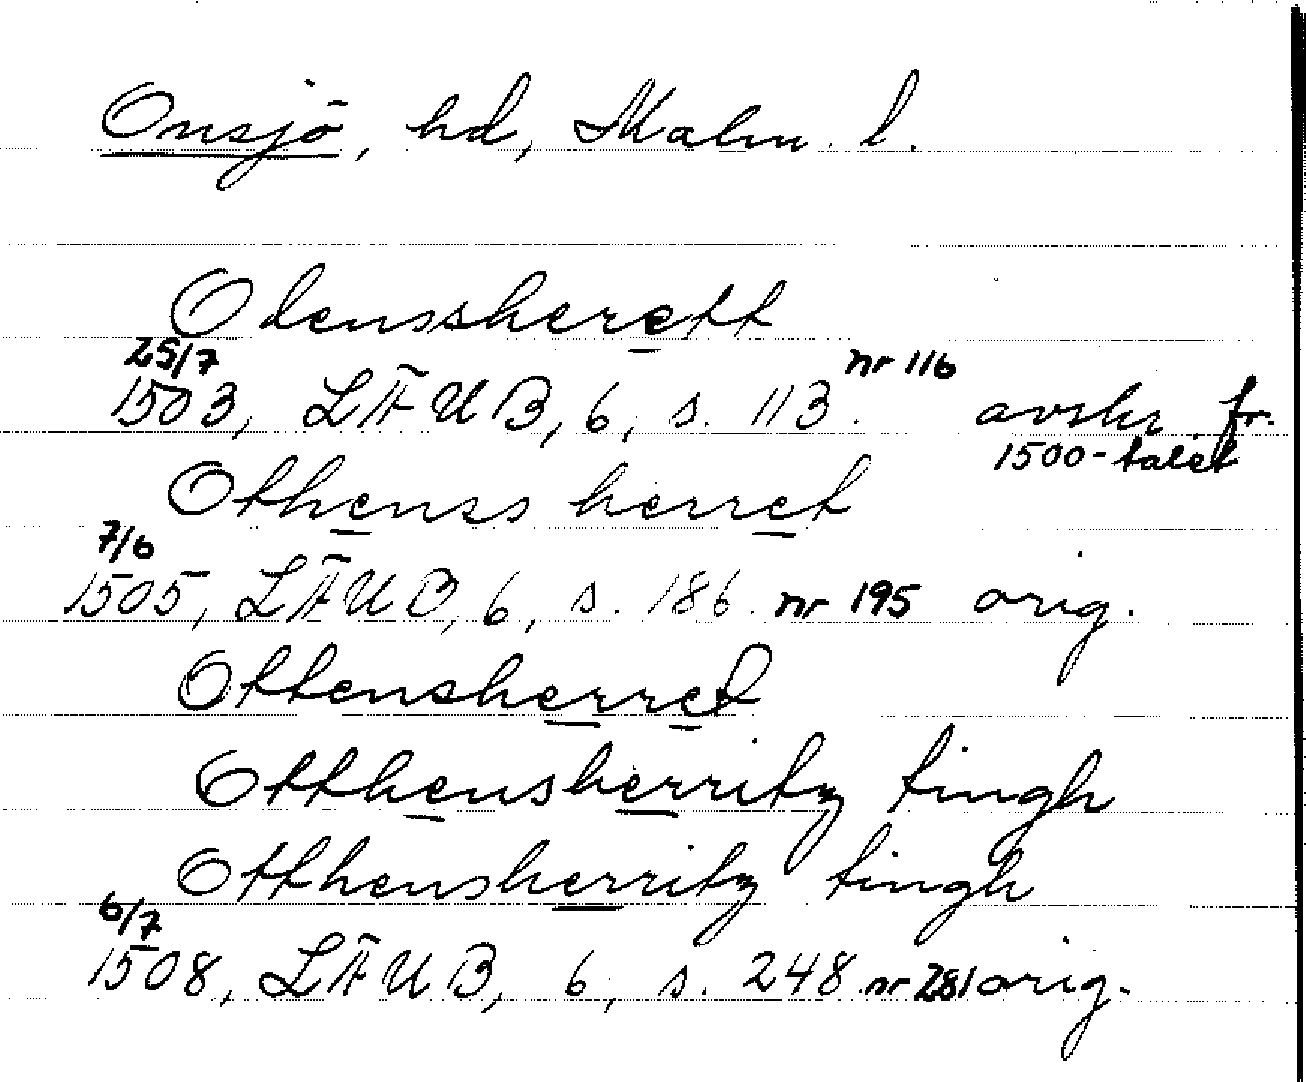 Onsjö, hd, Malm. l.
Odenssherett
25/7 nr 116
1503, LÄUB, 6, s. 113. avskr fr.
1500-talet
Othenss herret
7/6
1505, LÄUB, 6, s. 186. nr 195 orig.
Ottensherret
Otthensherritz tingh
Otthensherritz tingh
6/7
1508, LÄUB, 6, s. 248 nr 281 orig.